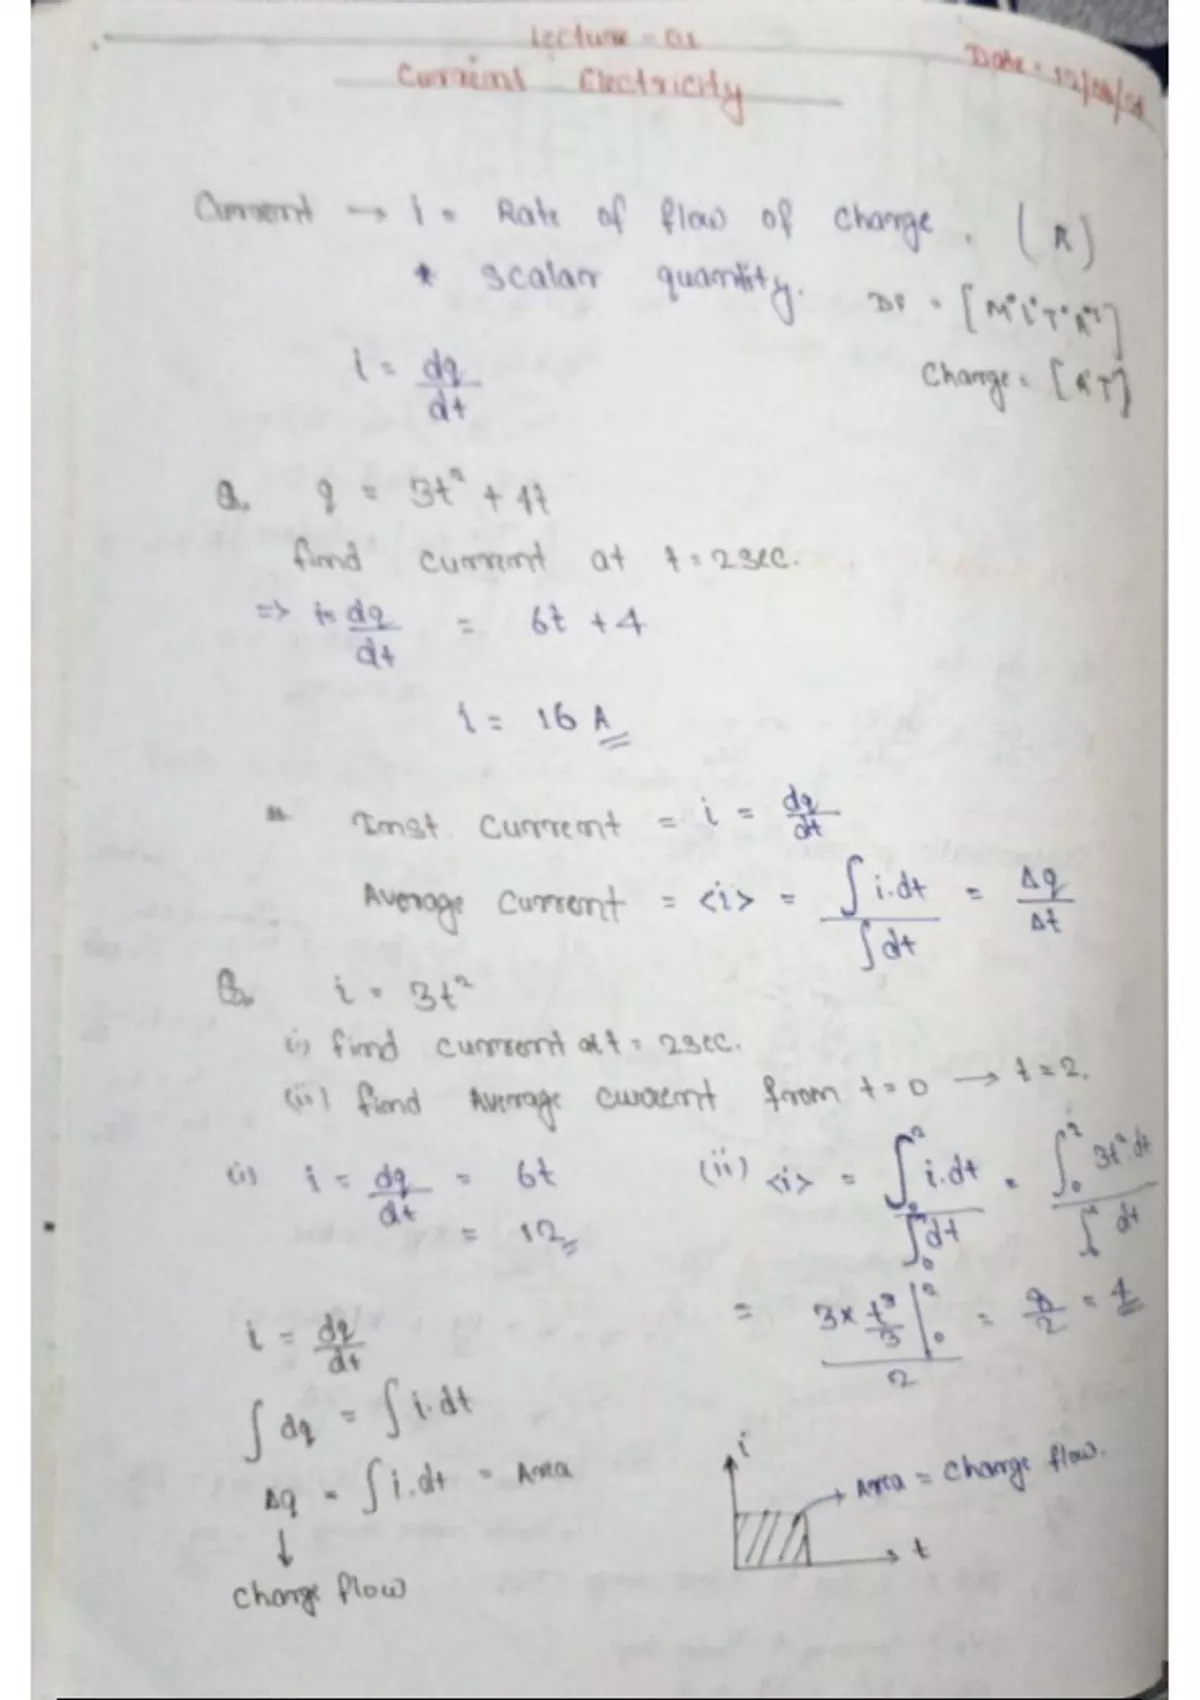 Lecture - 01
Current Electricity
Date = 12/
Current → i = Rate of flow of charge. (A)
* scalar quantity.
DF = [M⁰L⁰T⁰A¹]
i = dq/dt
Charge = [A¹T]
Q. q = 3t² + 4t
find current at t = 2 sec.
=> i = dq/dt = 6t + 4
i = 16 A
Inst current = i = dq/dt
Average current = <i> = ∫i.dt / ∫dt = Δq/Δt
Q. i = 3t²
(i) find current at t = 2 sec.
(ii) find Average current from t = 0 → t = 2.
(i) i = dq/dt = 6t
= 12
(ii) <i> = ∫₀² i.dt / ∫₀² dt = ∫₀² 3t².dt / ∫₀² dt
= 3 × t³/3 |₀² / 2 = 8/2 = 4
i = dq/dt
∫dq = ∫i.dt
Δq = ∫i.dt = Area
↓
charge flow
i
Area = charge flow.
t